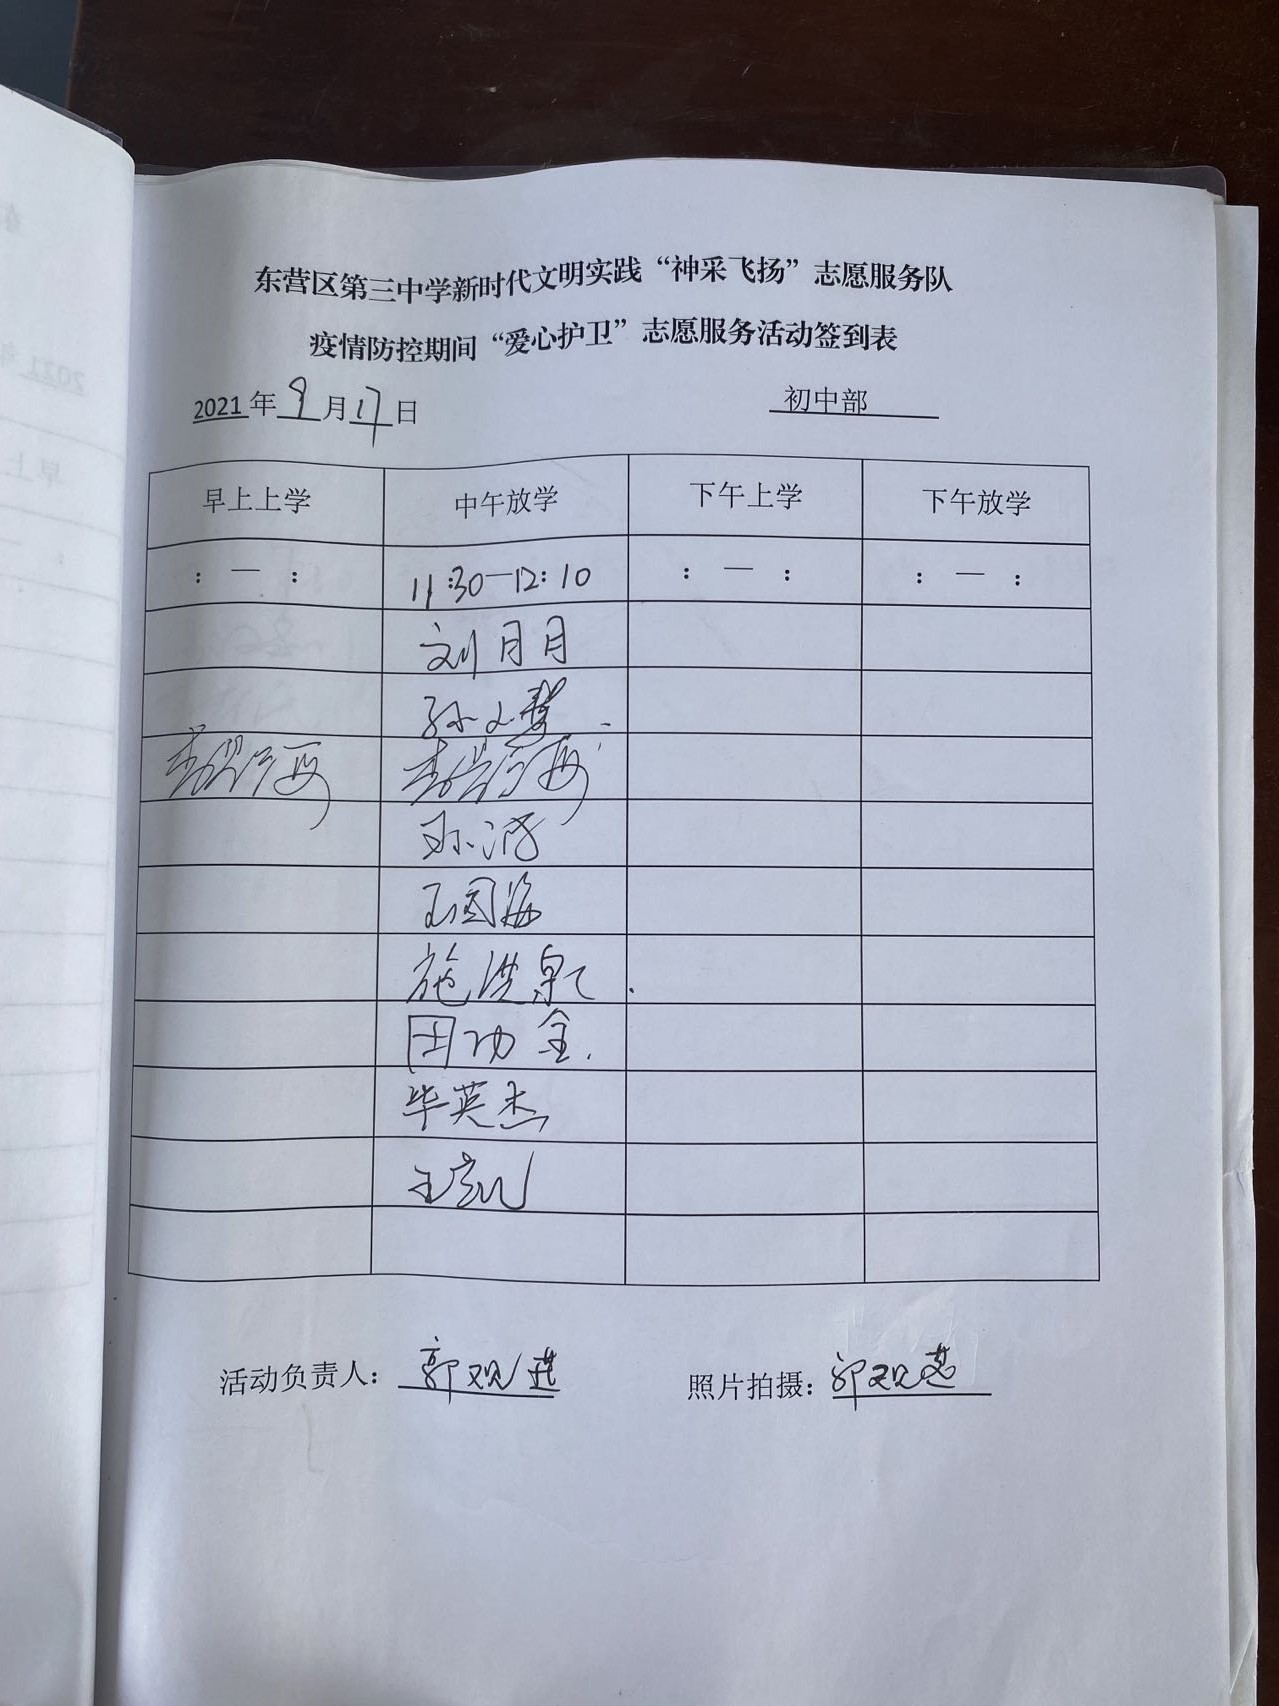 东营区第三中学新时代文明实践“神采飞扬”志愿服务队
疫情防控期间“爱心护卫”志愿服务活动签到表
2021年9月17日 初中部
早上上学 中午放学 下午上学 下午放学
： — ： 11:30—12:10 ： — ： ： — ：
刘月月
孙文慧
王国海
施洪泉
田功全
毕英杰
王凯
活动负责人： 郭观 照片拍摄： 郭观